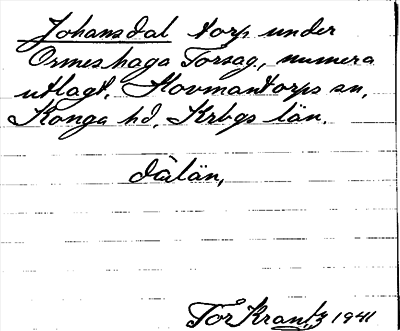 Johansdal torp under
Ormeshaga Torsag., numera
utlagt, Hovmantorps sn,
Konga hd, Krbgs län.
dålän,
Tor Krantz 1941